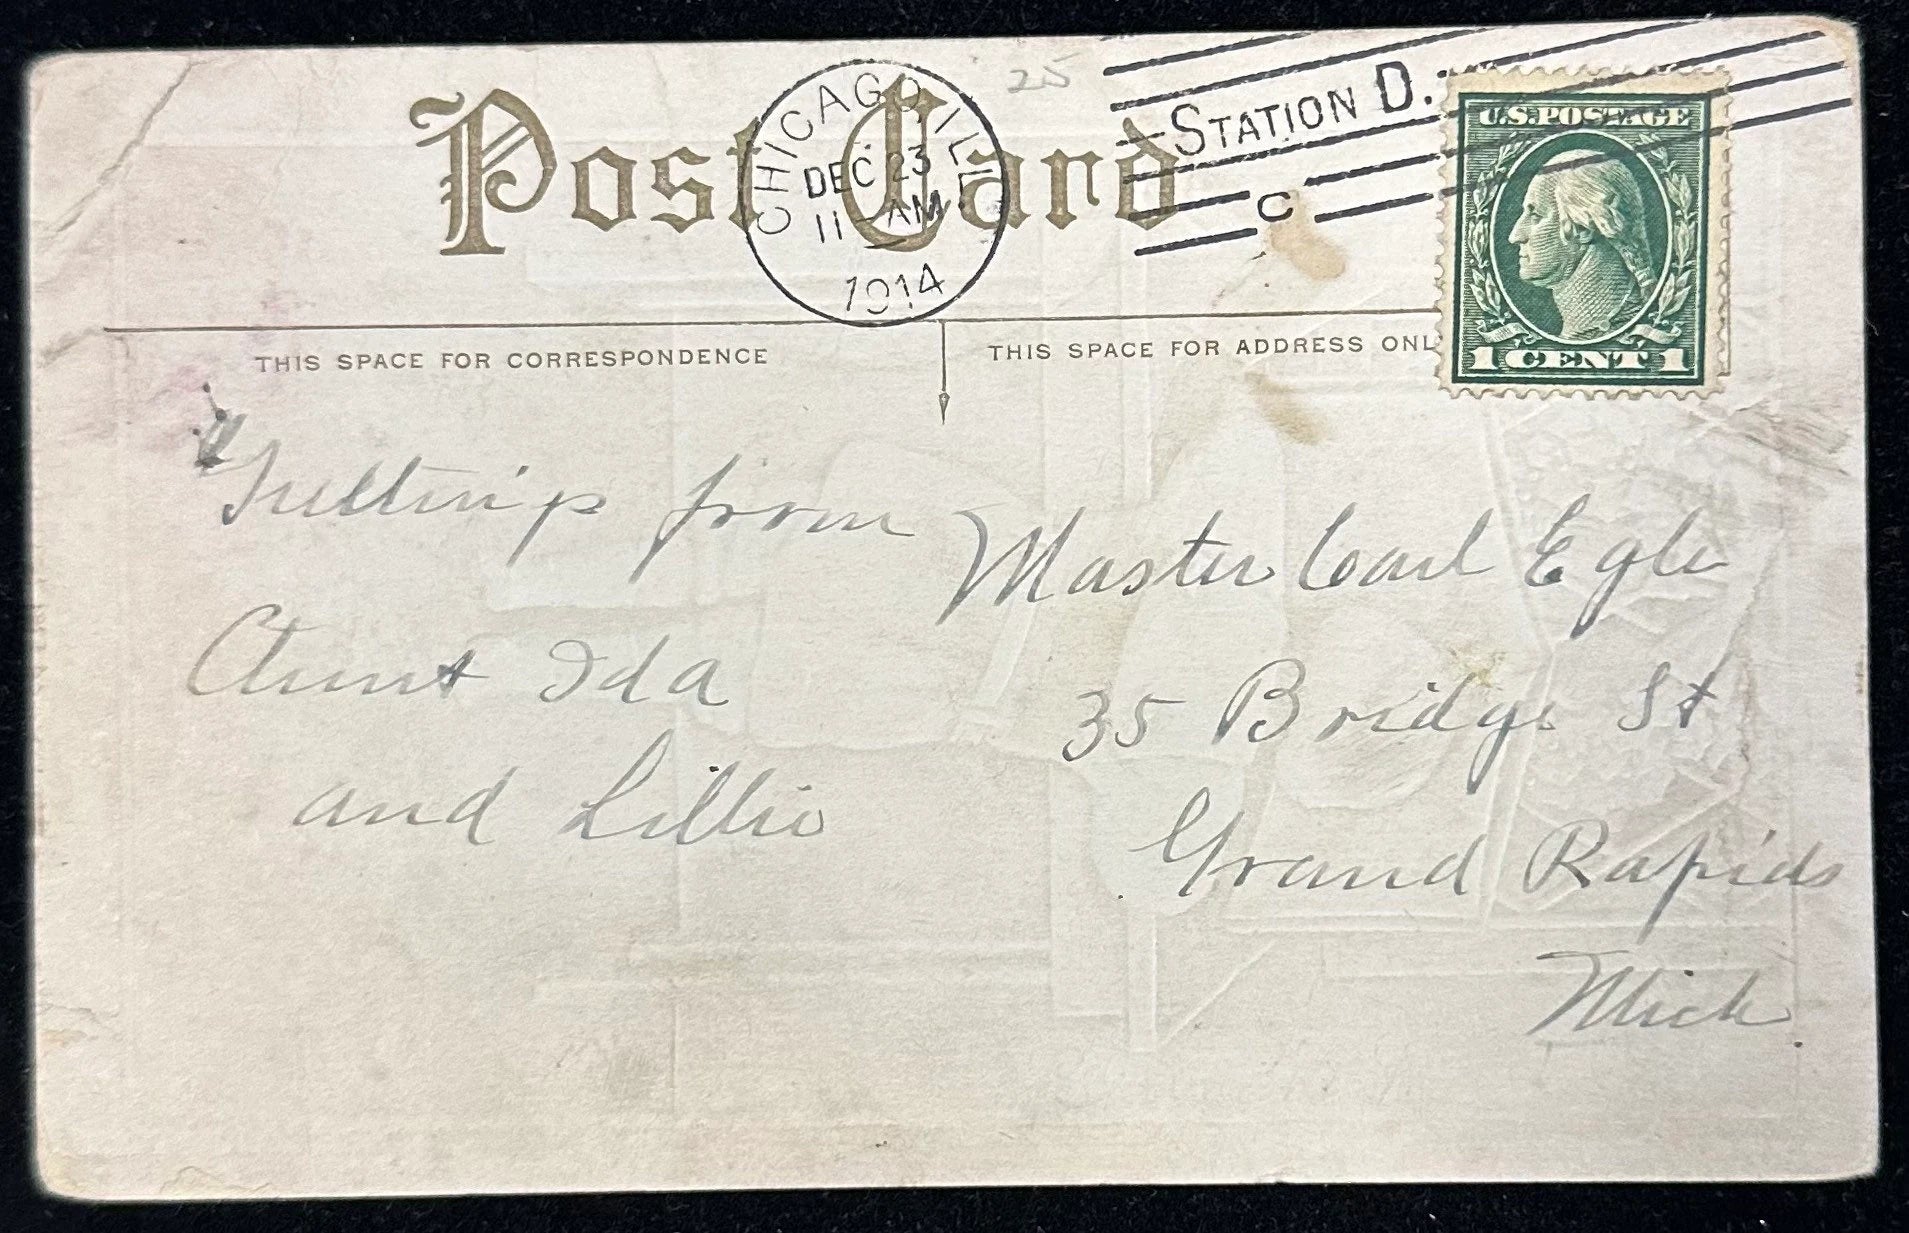 Post Card
25
CHICAGO, ILL.
DEC 23
11 - AM
1914
STATION D.
C
U.S. POSTAGE
1 CENT 1
THIS SPACE FOR CORRESPONDENCE
THIS SPACE FOR ADDRESS ONL
Greetings from
Aunt Ida
and Lillie
Master Carl Egle
35 Bridge St
Grand Rapids
Mich